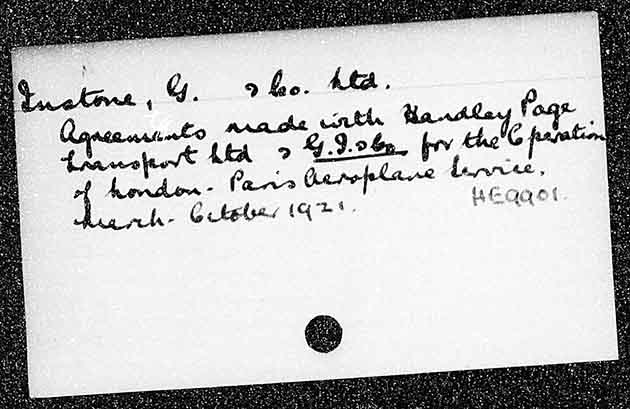 Instone, G. & Co. Ltd.
Agreements made with Handley Page
Transport Ltd & G.I. & Co for the Operation
of London - Paris Aeroplane Service.
March - October 1921.
HE9901.